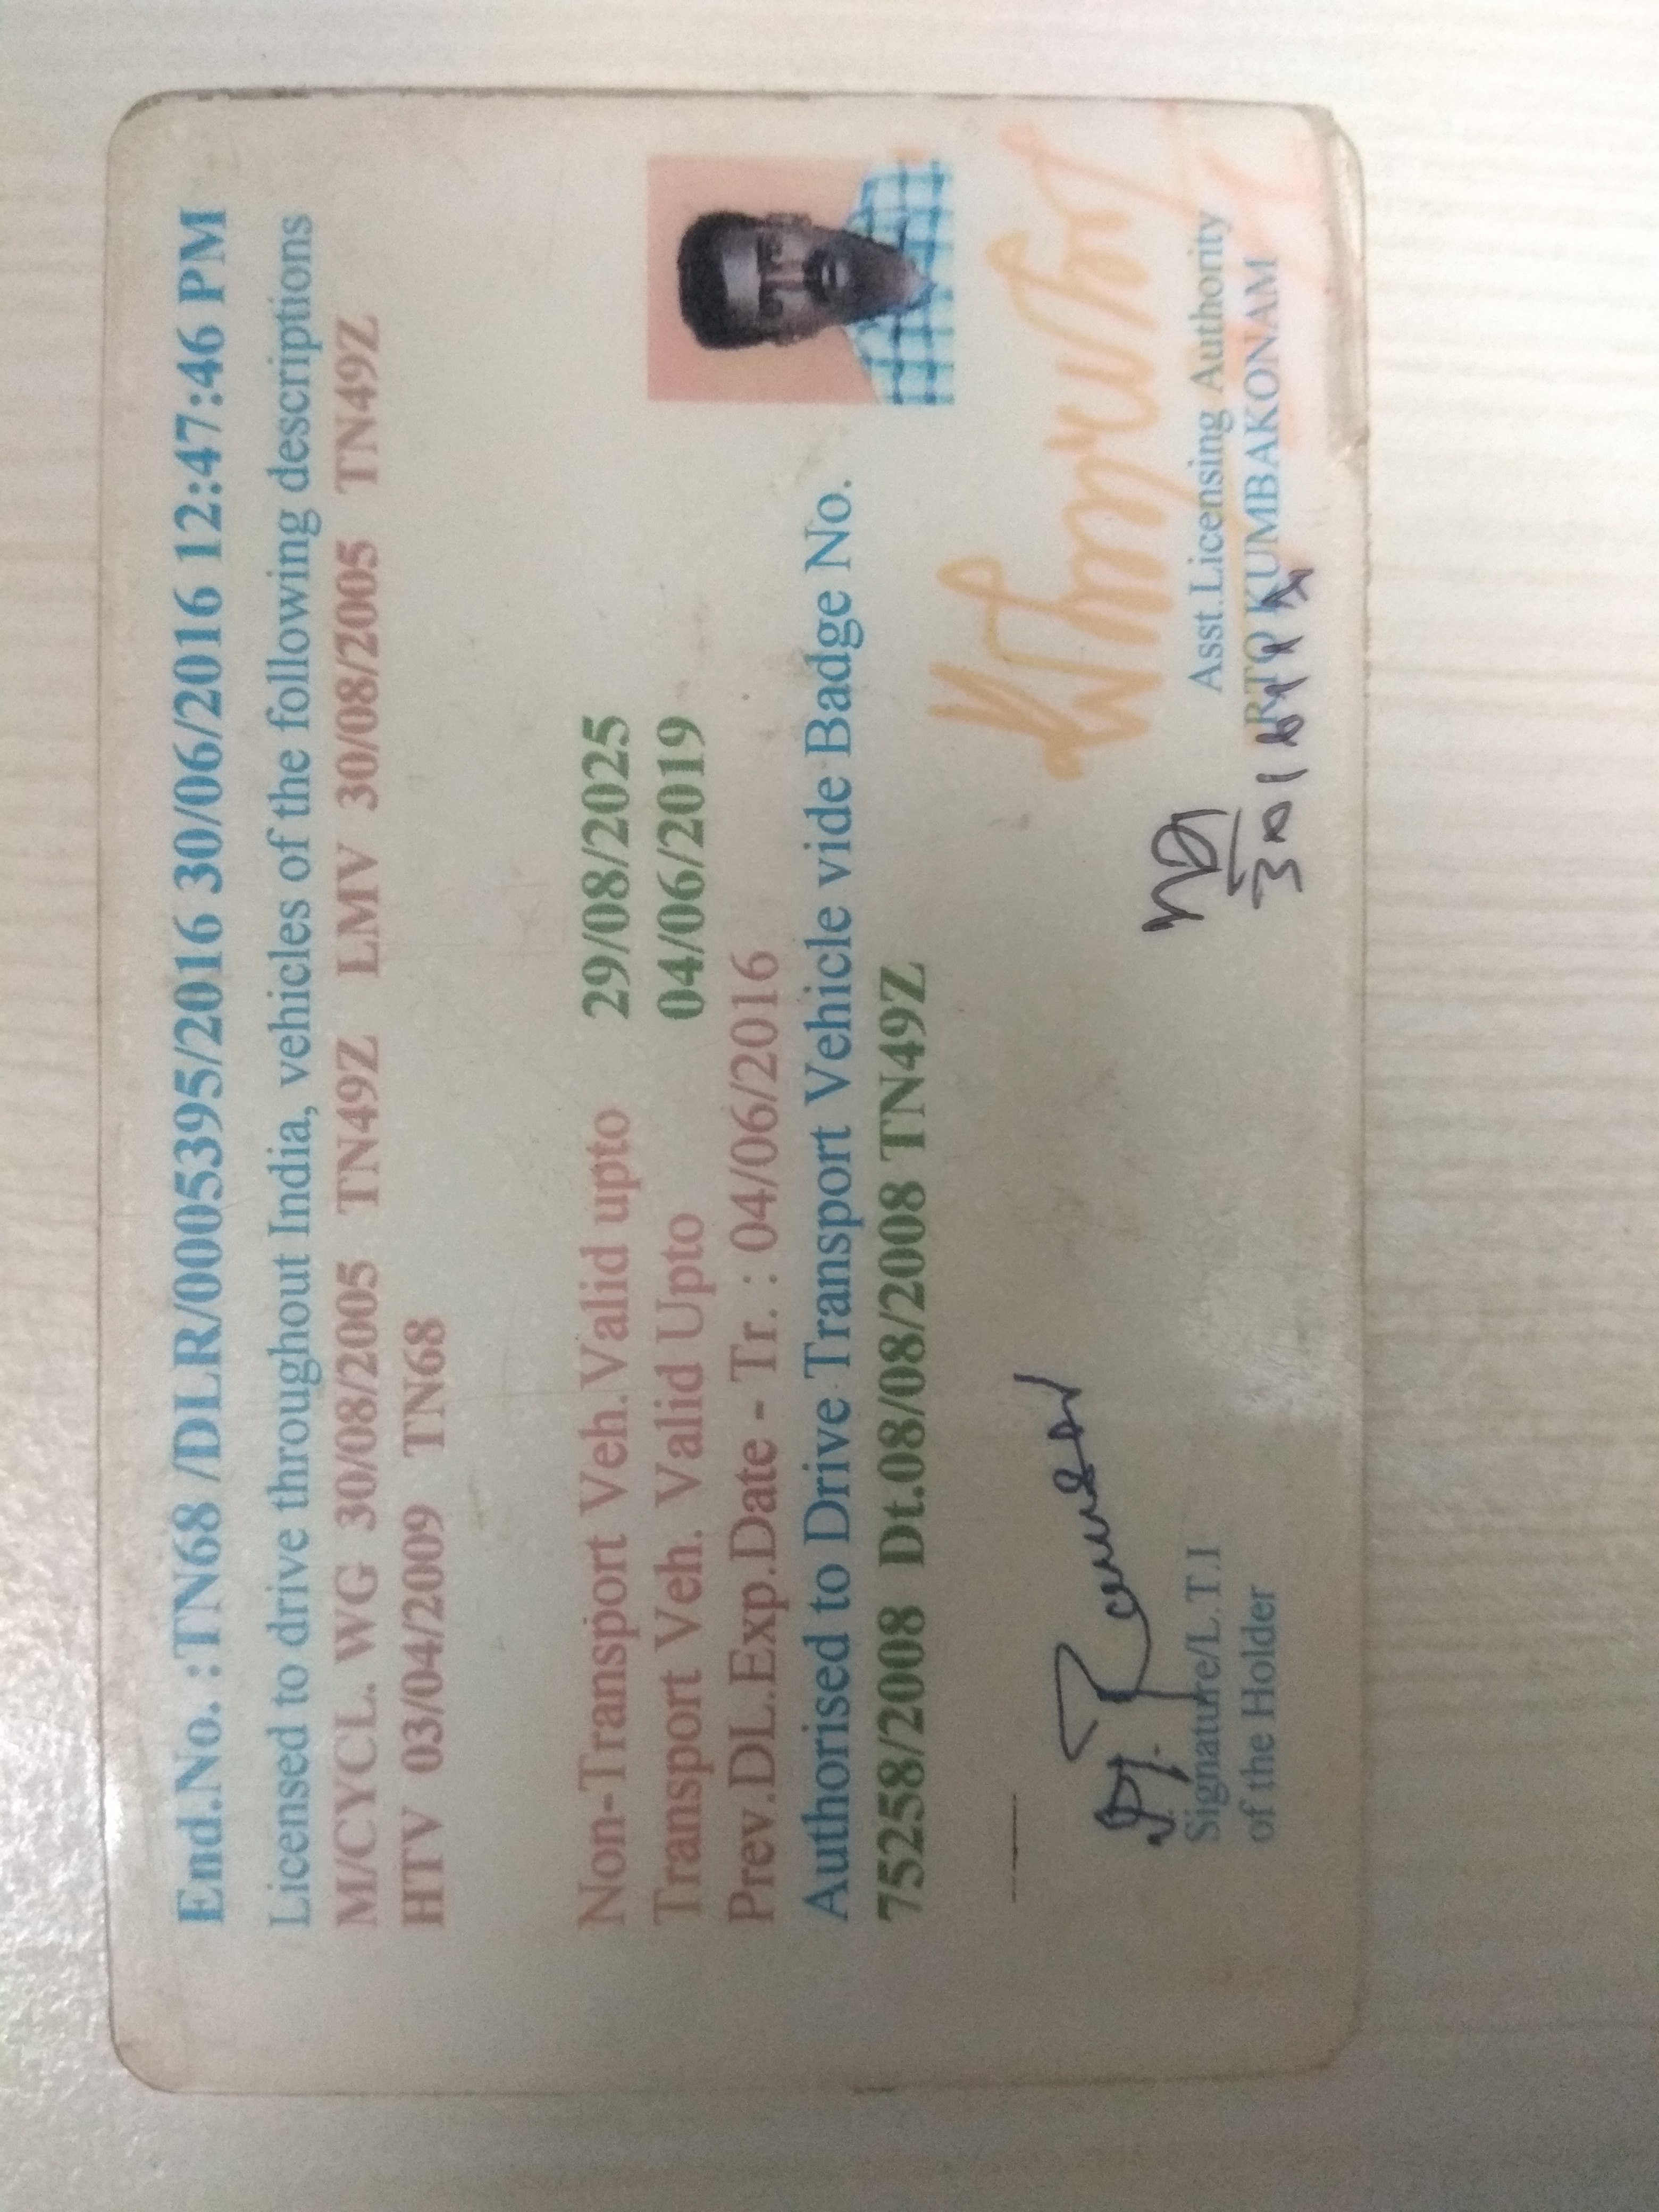 End.No. :TN68 /DLR/0005395/2016 30/06/2016 12:47:46 PM
Licensed to drive throughout India, vehicles of the following descriptions
M/CYCL. WG 30/08/2005 TN49Z LMV 30/08/2005 TN49Z
HTV 03/04/2009 TN68
Non-Transport Veh.Valid upto 29/08/2025
Transport Veh. Valid Upto 04/06/2019
Prev.DL.Exp.Date - Tr. : 04/06/2016
Authorised to Drive Transport Vehicle vide Badge No.
75258/2008 Dt.08/08/2008 TN49Z
Signature/L.T.I
of the Holder
Asst.Licensing Authority
RTO KUMBAKONAM